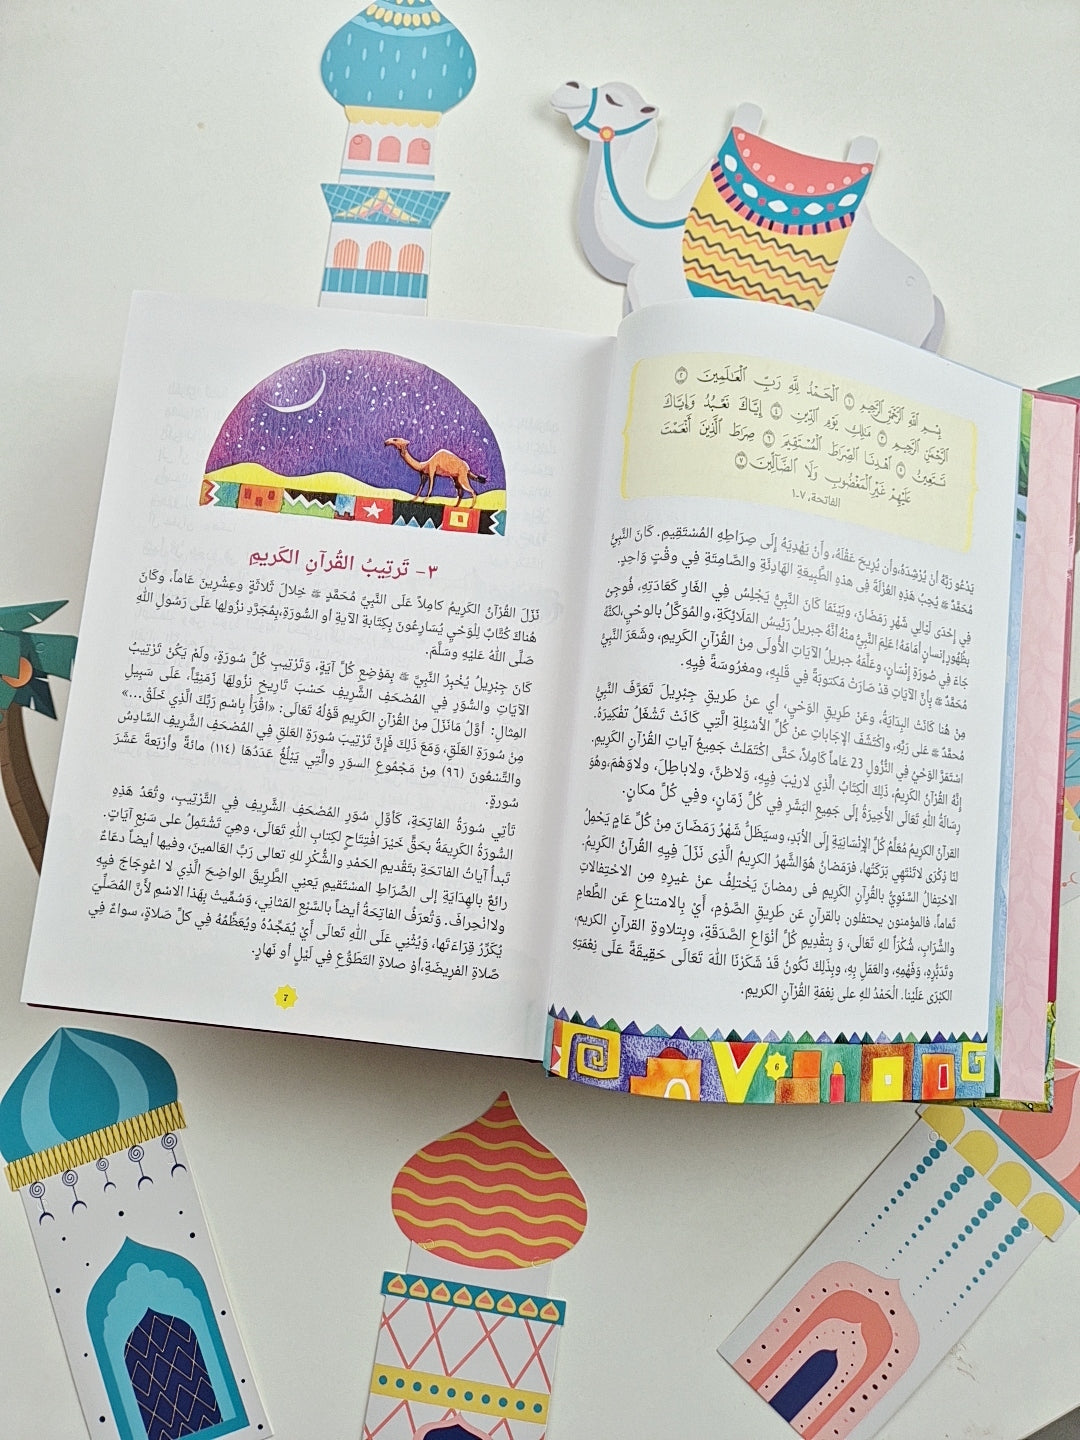 بِسْمِ اللَّهِ الرَّحْمَٰنِ الرَّحِيمِ ۝١ الْحَمْدُ لِلَّهِ رَبِّ الْعَالَمِينَ ۝٢
الرَّحْمَٰنِ الرَّحِيمِ ۝٣ مَالِكِ يَوْمِ الدِّينِ ۝٤ إِيَّاكَ نَعْبُدُ وَإِيَّاكَ
نَسْتَعِينُ ۝٥ اهْدِنَا الصِّرَاطَ الْمُسْتَقِيمَ ۝٦ صِرَاطَ الَّذِينَ أَنْعَمْتَ
عَلَيْهِمْ غَيْرِ الْمَغْضُوبِ وَلَا الضَّالِّينَ ۝٧
الفاتحة، ٧-١
يَدْعُو رَبَّهُ أنْ يُرْشِدَهُ، وأن يُرِيحَ عَقْلَهُ، وأَنْ يَهْدِيَهُ إلَى صِرَاطِهِ المُسْتَقِيمِ. كَانَ النَّبِيُّ
مُحَمَّدٌ ﷺ يُحِبُّ هَذِهِ العُزْلَةَ فِي هذهِ الطَّبِيعَةِ الهَادِئَةِ والصَّامِتَةِ فِي وقْتٍ وَاحِدٍ.
فِي إحْدَى لَيَالِي شَهْرِ رَمَضَانَ، وبَيْنَمَا كَانَ النَّبِيُّ يَجْلِسُ فِي الغَارِ كَعَادَتِهِ، فُوجِئَ
بِظُهُورِ إنسانٍ أمَامَهُ! عَلِمَ النَّبِيُّ مِنْهُ أنَّهُ جِبريلُ رَئِيسُ المَلَائِكَةِ، والمُوَكَّلُ بالوحْيِ،لكنَّهُ
جَاءَ فِي صُورَةِ إنْسَانٍ، وعَلَّمَهُ جبريلُ الآيَاتِ الأُولَى مِنْ القُرْآنِ الكَرِيمِ، وشَعَرَ النَّبِيُّ
مُحَمَّدٌ ﷺ بِأنَّ الآيَاتِ قدْ صَارَتْ مَكتوبَةً فِي قَلبِهِ، ومغْرُوسَةً فِيهِ.
مِنْ هُنا كَانَتِ البِدَايَةُ، وعَنْ طَرِيقِ الوَحْيِ، أي عنْ طَرِيقِ جِبْريلَ تَعَرَّفَ النَّبِيُّ
مُحمَّدٌ ﷺ عَلَى رَبِّهِ، واكْتَشَفَ الإجَابَاتِ عنْ كُلِّ الأسْئِلةِ الَّتِي كَانَتْ تَشْغَلُ تفْكِيرَهُ.
اسْتَمَرَّ الوَحْيُ فِي النُّزُولِ 23 عَاماً كَامِلاً، حَتَّى اكْتَمَلتْ جَمِيعُ آياتِ القُرْآنِ الكَرِيمِ.
إنَّهُ القُرآنُ الكَرِيمُ، ذَلِكَ الْكِتَابُ الَّذِي لاريْبَ فِيهِ، وَلاظنَّ، ولاباطِلَ، ولاوَهْمَ،وهُوَ
رِسَالَةُ اللهِ تَعَالَى الأخِيرَةُ إلَى جَمِيعِ البَشَرِ فِي كُلِّ زَمَانٍ، وفِي كُلِّ مكانٍ.
القرآنُ الكَرِيمُ مُعَلِّمُ كُلِّ الإنْسَانِيَّةِ إلَى الأبَدِ، وسيَظَلُّ شَهْرُ رَمَضَانَ مِنْ كُلِّ عَامٍ يَحْمِلُ
لنَا ذِكْرَى لاتَنْتَهِي بَرَكَتُهَا، فرَمَضَانُ هُوَالشَّهرُ الكريمُ الَّذِى نَزَلَ فِيهِ القُرآنُ الكَرِيمُ.
الاحْتِفالُ السَّنَوِيُّ بالقُرآنِ الكَرِيمِ فِى رمضانَ يَخْتَلِفُ عنْ غيرِهِ مِن الاحْتِفَالاتِ
تَماماً، فالمؤمنون يحتفلون بالقرآنِ عَن طَرِيقِ الصَّوْمِ، أيْ بِالامتناعِ عَن الطَّعامِ
والشَّرَابِ، شُكْرًا للهِ تَعَالَى، وَ بِتَقْدِيمِ كُلِّ أنْوَاعِ الصَّدَقَةِ، وبِتلاوةِ القرآنِ الكريمِ،
وتَدَبُّرِهِ، وفَهْمِهِ، والعَمَلِ بِهِ، وبِذَلِكَ نَكُونُ قَدْ شَكَرْنَا اللَّهَ تَعَالَى حَقِيقَةً عَلَى نِعْمَتِهِ
الكبْرَى عَلَيْنا. الْحَمْدُ للهِ على نِعْمَةِ القُرْآنِ الكريمِ.
6
٣- تَرتِيبُ القُرآنِ الكَريمِ
نَزَلَ القُرْآنُ الكَرِيمُ كامِلاً عَلَى النَّبِيِّ مُحَمَّدٍ ﷺ خِلالَ ثَلاثَةٍ وعِشْرِينَ عَاماً، وكَانَ
هُناكَ كُتَّابٌ لِلْوَحْيِ يُسَارِعُونَ بِكِتَابةِ الآيةِ أو السُّورَةِ،بِمُجَرَّدِ نزُولِها عَلَى رَسُولِ اللَّهِ
صَلَّى اللَّهُ عَلَيْهِ وسَلَّمَ.
كَانَ جِبْرِيلُ يُخْبِرُ النَّبِيَّ ﷺ بِمَوْضِعِ كُلِّ آيَةٍ، وَتَرْتِيبِ كُلِّ سُورَةٍ، ولَمْ يَكُنْ تَرْتِيبُ
الآيَاتِ والسُّورِ فِي المُصْحَفِ الشَّرِيفِ حَسَبَ تَارِيخِ نزُولِهَا زَمَنِيَّاً، عَلَى سَبِيلِ
المِثالِ: أوَّلُ مَانَزَلَ مِنْ القُرْآنِ الكَرِيمِ قَوْلُهُ تَعَالَى: «اقْرَأْ بِاسْمِ رَبِّكَ الَّذِي خَلَقَ...»
مِنْ سُورَةِ العَلَقِ، وَمَعَ ذَلِكَ فَإنَّ تَرْتِيبَ سُورَةِ العَلقِ فِي المُصْحَفِ الشَّرِيفِ السَّادِسُ
والتِّسْعُونَ (٩٦) مِنْ مَجْمُوعِ السوَرِ والَّتِي يَبْلُغُ عَدَدُهَا (١١٤) مائةً وأَرْبَعَةَ عَشَرَ
سُورَةٍ.
تَأتِي سُورَةُ الفاتِحَةِ، كَأوَّلِ سُوَرِ المُصْحَفِ الشَّرِيفِ فِي التَّرْتِيبِ، وتُعَدُّ هَذِهِ
السُّورَةُ الكَرِيمَةُ بحَقٍّ خَيْرَ افْتِتَاحٍ لِكِتابِ اللَّهِ تَعَالَى، وهِيَ تَشْتَمِلُ عَلَى سَبْعِ آيَاتٍ.
تَبدأُ آياتُ الفَاتحَةِ بِتَقْديمِ الحَمْدِ والشُّكْرِ للهِ تعالى رَبِّ العَالمينَ، وفيها أيضاً دعَاءٌ
رائعٌ بالهِدَايَةِ إلَى الصِّرَاطِ المسْتَقيمِ يَعنِي الطَّرِيقَ الواضِحَ الَّذِي لا اعْوجَاجَ فيهِ
ولاانْحِرافَ. وتُعرَفُ الفاتِحَةُ أيضاً بالسَّبْعِ المَثانِي، وَسُمِّيتْ بِهَذا الاسْمِ لأَنَّ المُصَلِّيَ
يُكَرِّرُ قِرَاءَتَها، وَيُثْنِي عَلَى اللَّهِ تَعَالَى أيْ يُمَجِّدُهُ ويُعَظِّمُهُ فِي كلِّ صَلاةٍ، سواءٌ فِي
صَلاةِ الفَرِيضَةِ،أوْ صلاةِ التَّطَوُّعِ فِي لَيْلٍ أو نَهارٍ.
7